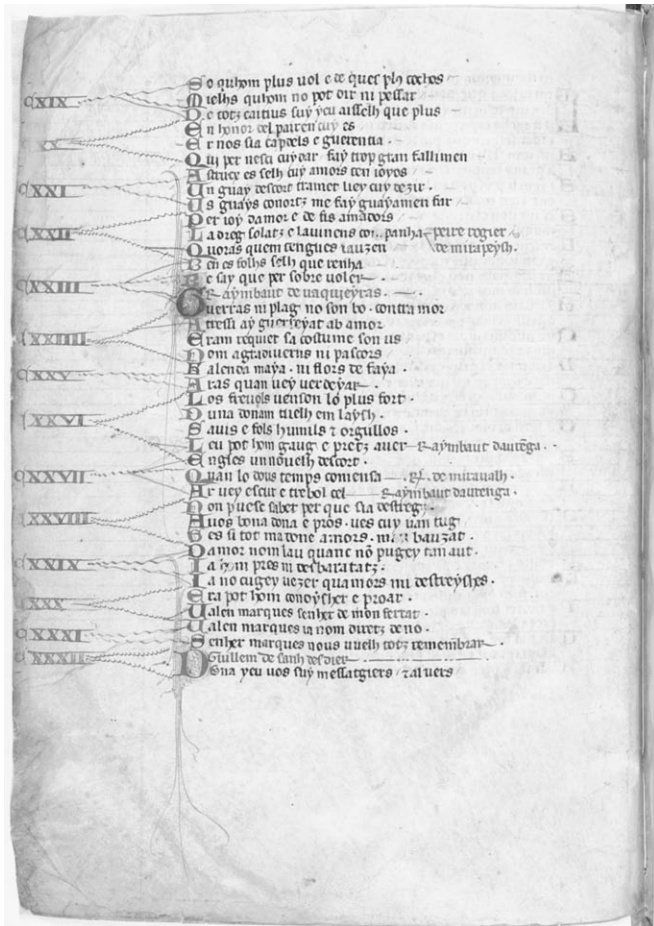 XIX
XX
XXI
XXII
XXIII
XXIIII
XXV
XXVI
XXVII
XXVIII
XXIX
XXX
XXXI
XXXII
So quhom plus uol e de ques plus cochos
Mielhs quhom no pot dir ni pessar
De totz caitius suy yeu aisselh que plus
En honor del pairen cuy es
Er nos sia capdels e guerentia
Qui per nesci cuydar fay trop gran fallimen
Astrucx es selh cuy amors ten ioyos
Un guay descort tramet liey cuy dezir
Us guays conortz me fay guayamen far
Per ioy damor e de fis amadors
La dreg solatz e lavinens companha peire rogier
Quoras quem tengues iauzen de mirapeysh
Ben es folhs selh que renha
Be say que per sobre uoler
Raymbaut de vaquieyras
Guerras ni plag no son bo contra mor
Atressi ay guerreyat ab amor
Eram requier sa costume son us
Nom agradiuerns ni pascors
Kalenda maya ni flors de faya
Aras quan uey uerdeyar
Los freuols uenson lo plus fort
Duna donam tuelh em laysh
Sauis e fols humils e orgullos
Leu pot hom gaug e pretz auer Raymbaut daurenga
Engles un nouelh descort
Quan lo dous temps comensa R. de miraualh
Ar uey escur e trebol cel Raymbaut daurenga
Non puesc saber per que sia destreg
A uos bona dona e pros ues cuy uan tug
Ges si tot ma done amors bauzat
Damor nom lau quanc no pugey tan aut
Ia hom pres ni desharatatz
Ia no cugey uezer quamors mi destreyshes
Era pot hom conoysher e proar
Ualen marques senher de mon ferrat
Ualen marques ia nom diretz de no
Senher marques nous uuelh totz remembrar
Guillem de sanh desdier
Dona yeu uos suy messatgiers al uers